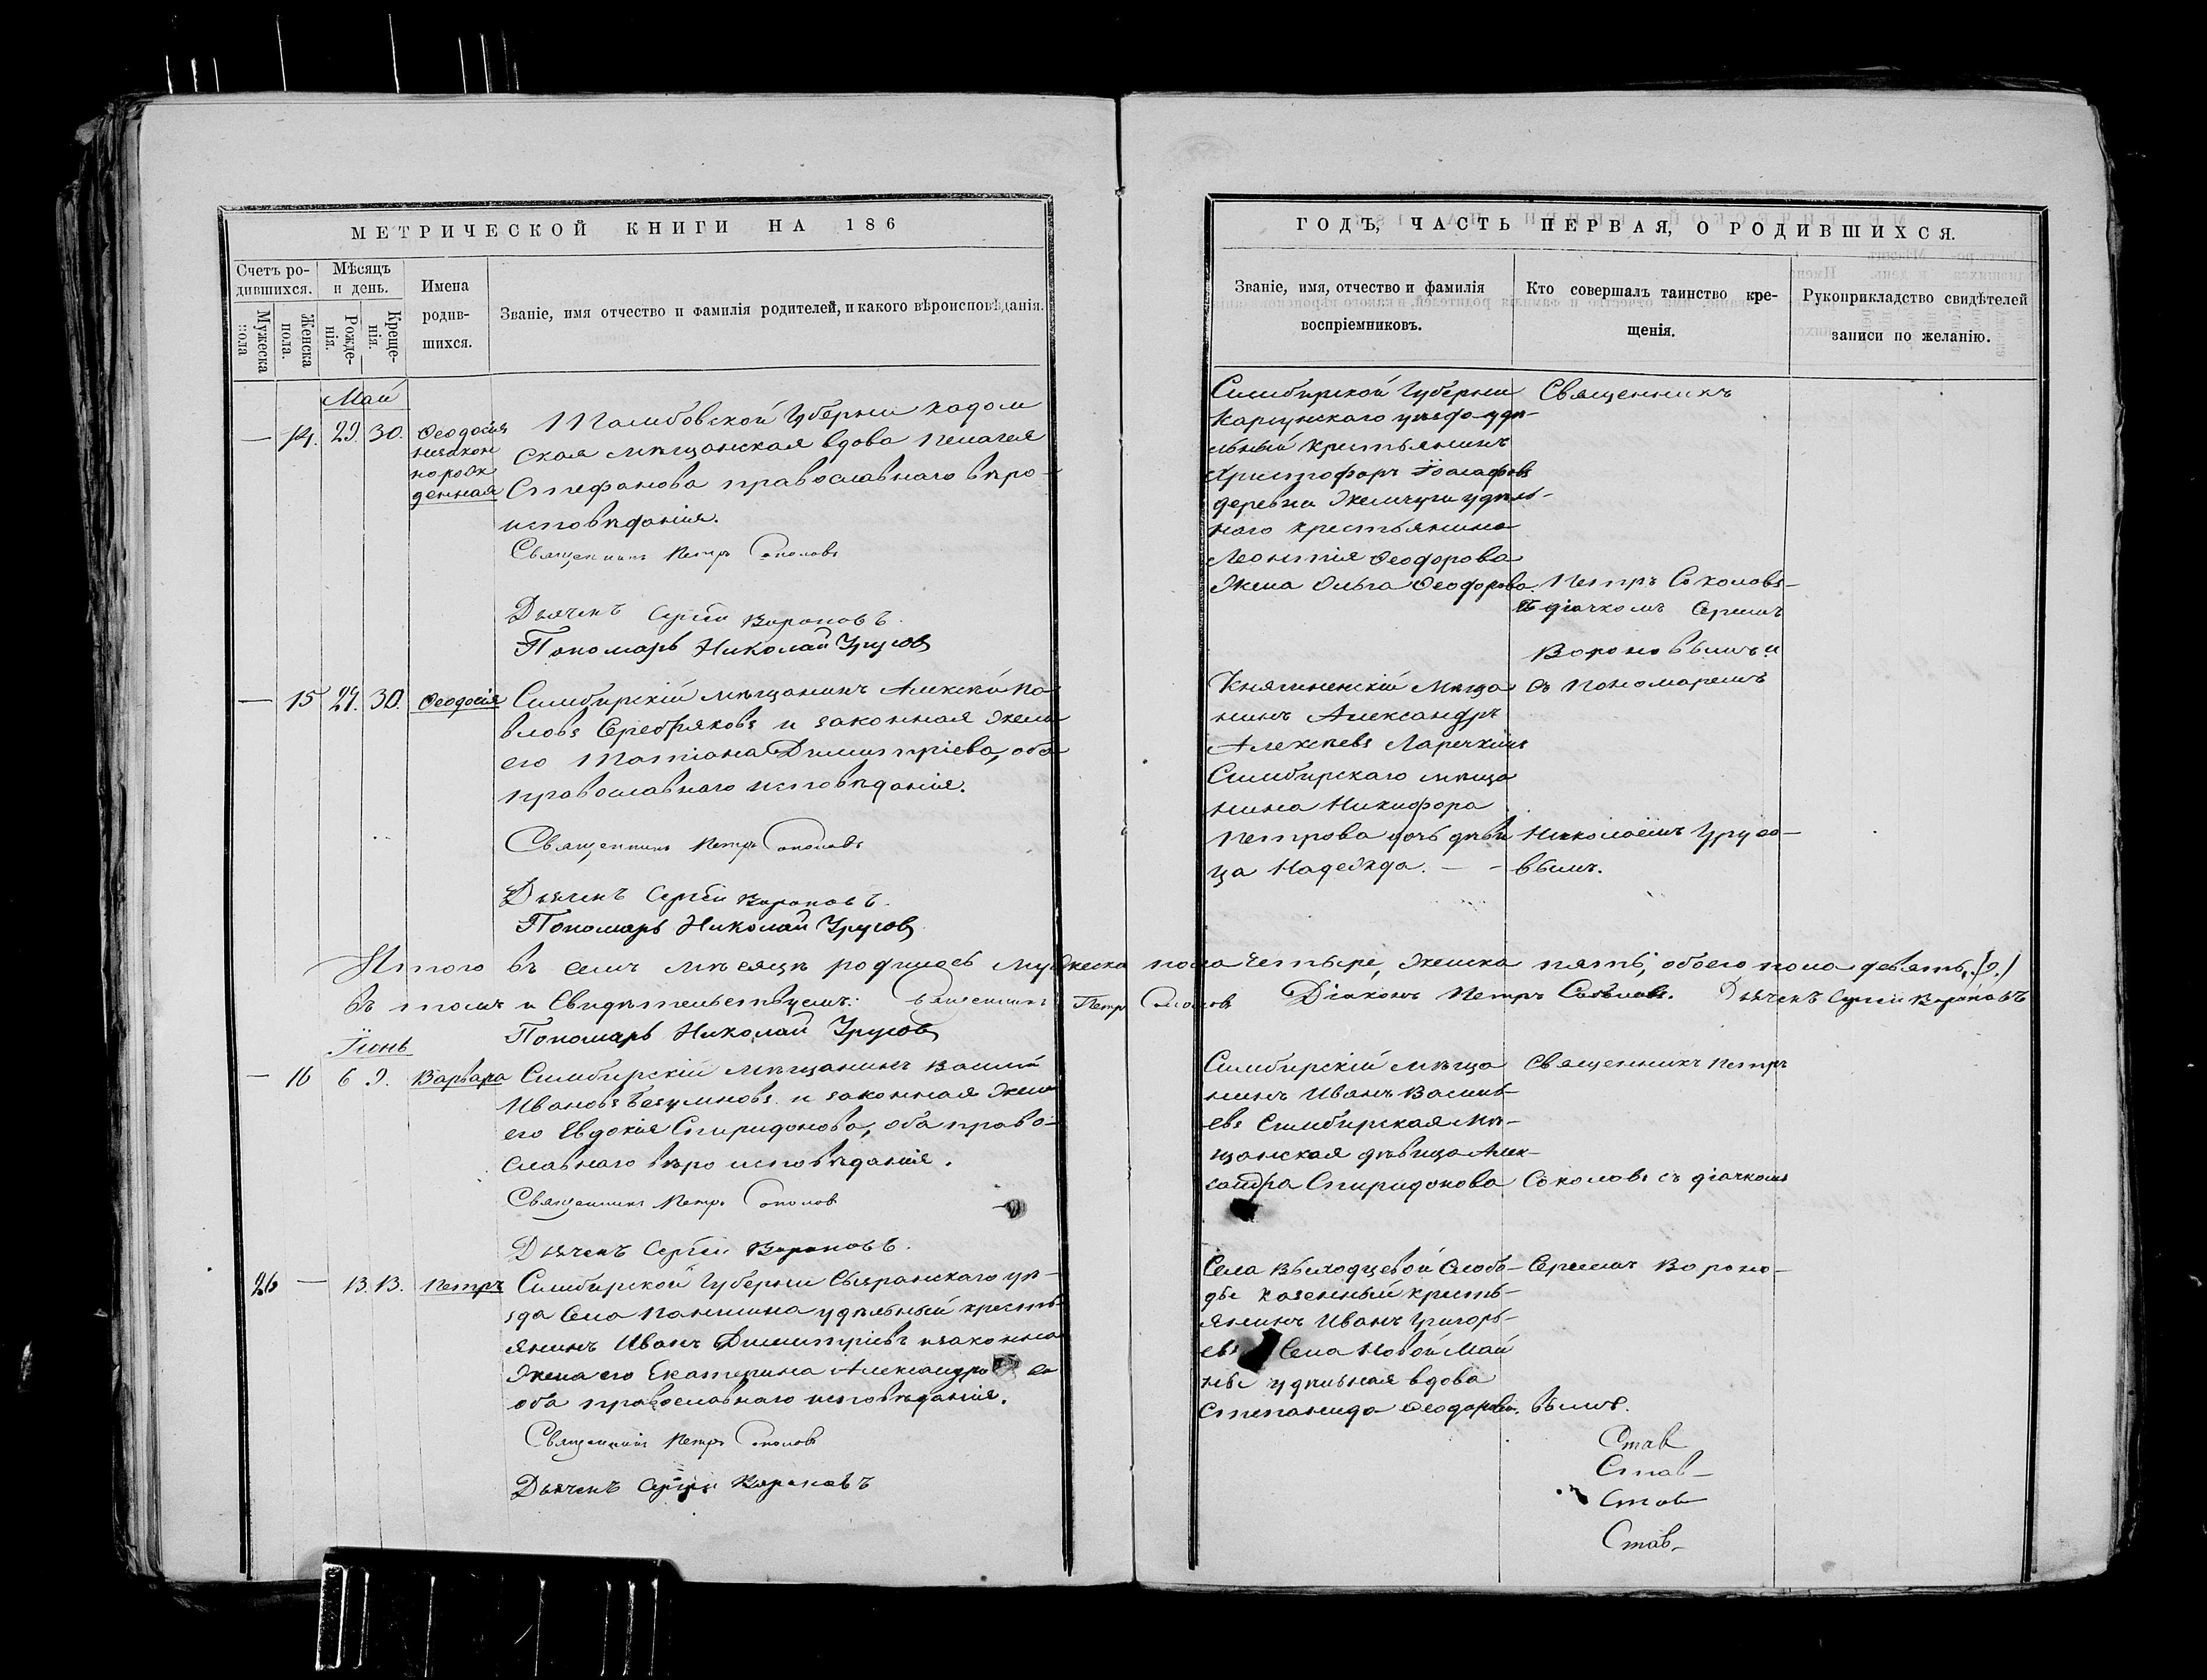 МЕТРИЧЕСКОЙ КНИГИ НА 186
Счетъ ро-
дившихся.
Мѣсяцъ
и день.
Мужеска
пола
Женска
пола.
Рожде-
нія.
Креще-
нія.
Имена
родив-
шихся.
Званіе, имя отчество и фамилія родителей, и какого вѣроисповѣданія.
Май
— 14. 29. 30. Ѳеодосія
незакон
норож
денная
Тамбовской Губерніи Кадом
ская мѣщанская вдова Пелагея
Стефанова православнаго вѣро-
исповѣданія.
Священникъ Петръ Соколовъ
Дьячекъ Сергѣй Вороновъ.
Пономарь Николай Урусовъ
— 15 29. 30. Ѳеодосія Симбирскій мѣщанинъ Алексѣй Па
вловъ Серебряковъ и законная жена
его Татіана Димитріева, оба
православнаго исповѣданія.
Священникъ Петръ Соколовъ
Дьячекъ Сергѣй Вороновъ.
Пономарь Николай Урусовъ
Итого въ семъ мѣсяцѣ родилось мужеска пола четыре, женска пять, обоего пола девять. (9.)
въ томъ и свидѣтельствуемъ: Священникъ Петръ Соколовъ Діаконъ Петръ Дьячекъ Сергѣй Вороновъ
Пономарь Николай Урусовъ
Іюнь
— 16 6 9. Варвара Симбирскій мѣщанинъ Василій
Ивановъ Безумновъ и законная жена
его Евдокія Спиридонова, оба право-
славнаго вѣроисповѣданія.
Священникъ Петръ Соколовъ
Дьячекъ Сергѣй Вороновъ.
26 — 13. 13. Петръ Симбирской Губерніи Сызранскаго уѣ-
зда Села Паншина удѣльный кресть-
янинъ Иванъ Димитріевъ и законная
жена его Екатерина Александрова
оба православнаго исповѣданія.
Священникъ Петръ Соколовъ
Дьячекъ Сергѣй Вороновъ
ГОДЪ, ЧАСТЬ ПЕРВАЯ, О РОДИВШИХСЯ.
Званіе, имя, отчество и фамилія
воспріемниковъ.
Кто совершалъ таинство кре-
щенія.
Рукоприкладство свидѣтелей
записи по желанію.
Симбирской Губерніи
Карсунскаго уѣзда удѣ-
льный крестьянинъ
Христофоръ Іоасафовъ
деревни Жемчуги удѣль-
наго крестьянина
Леонтія Ѳеодорова
жена Ольга Ѳеодорова.
Священникъ
Петръ Соколовъ
дьячкомъ Сергѣемъ
Вороновымъ и
Княгиненскій мѣща
нинъ Александръ
Алексѣевъ Ларечкинъ
Симбирскаго мѣща
нина Никифора
Петрова дочь дѣви
ца Надежда. —
съ пономаремъ
Николаемъ Урусо-
вымъ.
Симбирскій мѣща
нинъ Иванъ Василь-
евъ Симбирская мѣ-
щанская дѣвица Алек-
сандра Спиридонова
Священникъ Петръ
Соколовъ съ дьячкомъ
Села Выходцевой Слобо-
ды казенный кресть-
янинъ Иванъ Григорь-
евъ Села Новой Май
ны удѣльная вдова
Степанида Ѳеодорова.
Сергѣемъ Вороно-
вымъ.
Став
Став-
Став
Став-